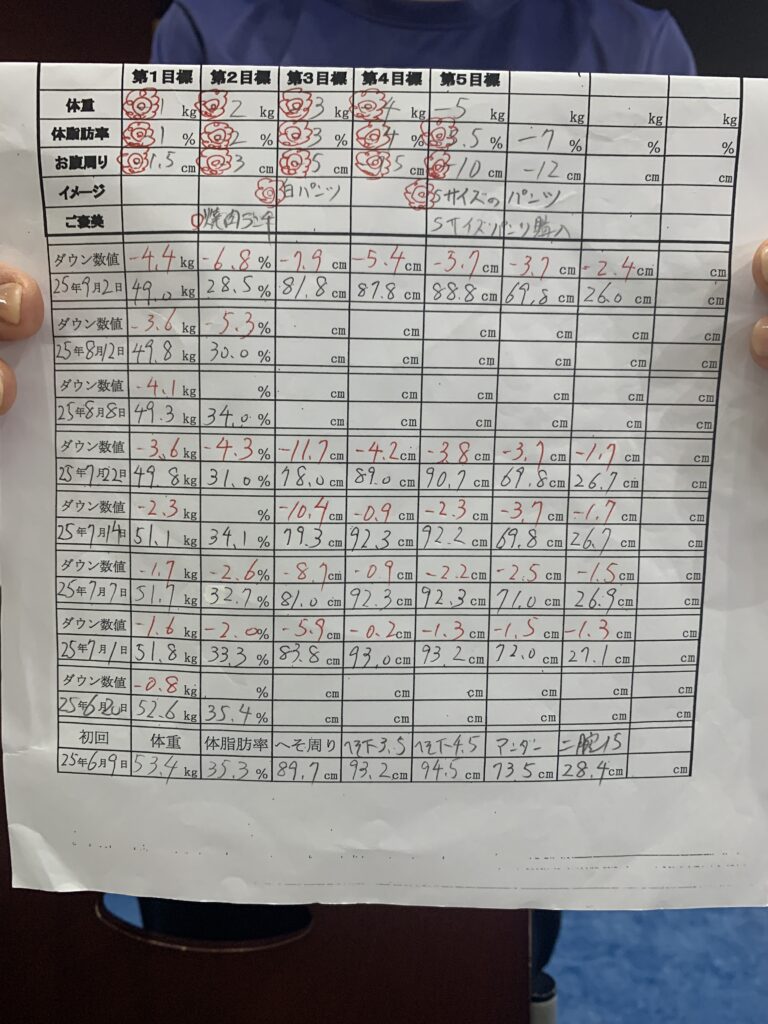 第1目標 第2目標 第3目標 第4目標 第5目標
体重 1 kg 2 kg 3 kg 4 kg -5 kg kg kg kg
体脂肪率 1 % 2 % 3 % 4 % 5.5 % -7 % % %
お腹周り 1.5 cm 3 cm 5 cm cm -10 cm -12 cm cm cm
イメージ 白パンツ Sサイズのパンツ
ご褒美 焼肉ランチ Sサイズパンツ購入
ダウン数値 -4.4 kg -6.8 % -7.9 cm -5.4 cm -3.7 cm -3.7 cm -2.4 cm cm
25年9月2日 49.0 kg 28.5 % 81.8 cm 87.8 cm 88.8 cm 69.8 cm 26.0 cm cm
ダウン数値 -3.6 kg -5.3 % cm cm cm cm cm cm
25年8月12日 49.8 kg 30.0 % cm cm cm cm cm cm
ダウン数値 -4.1 kg % cm cm cm cm cm cm
25年8月8日 49.3 kg 34.0 % cm cm cm cm cm cm
ダウン数値 -3.6 kg -4.3 % -11.7 cm -4.2 cm -3.8 cm -3.7 cm -1.7 cm cm
25年7月22日 49.8 kg 31.0 % 78.0 cm 89.0 cm 90.7 cm 69.8 cm 26.7 cm cm
ダウン数値 -2.3 kg % -10.4 cm -0.9 cm -2.3 cm -3.7 cm -1.7 cm cm
25年7月14日 51.1 kg 34.1 % 79.3 cm 92.3 cm 92.2 cm 69.8 cm 26.7 cm cm
ダウン数値 -1.7 kg -2.6 % -8.7 cm -0.9 cm -2.2 cm -2.5 cm -1.5 cm cm
25年7月7日 51.7 kg 32.7 % 81.0 cm 92.3 cm 92.3 cm 71.0 cm 26.9 cm cm
ダウン数値 -1.6 kg -2.0 % -5.9 cm -0.2 cm -1.3 cm -1.5 cm -1.3 cm cm
25年7月1日 51.8 kg 33.3 % 83.8 cm 93.0 cm 93.2 cm 72.0 cm 27.1 cm cm
ダウン数値 -0.8 kg % cm cm cm cm cm cm
25年6月20日 52.6 kg 35.4 % cm cm cm cm cm cm
初回 体重 体脂肪率 へそ周り へそ下3.5 へそ下4.5 アンダー 二腕15
25年6月9日 53.4 kg 35.3 % 89.7 cm 93.2 cm 94.5 cm 73.5 cm 28.4 cm cm